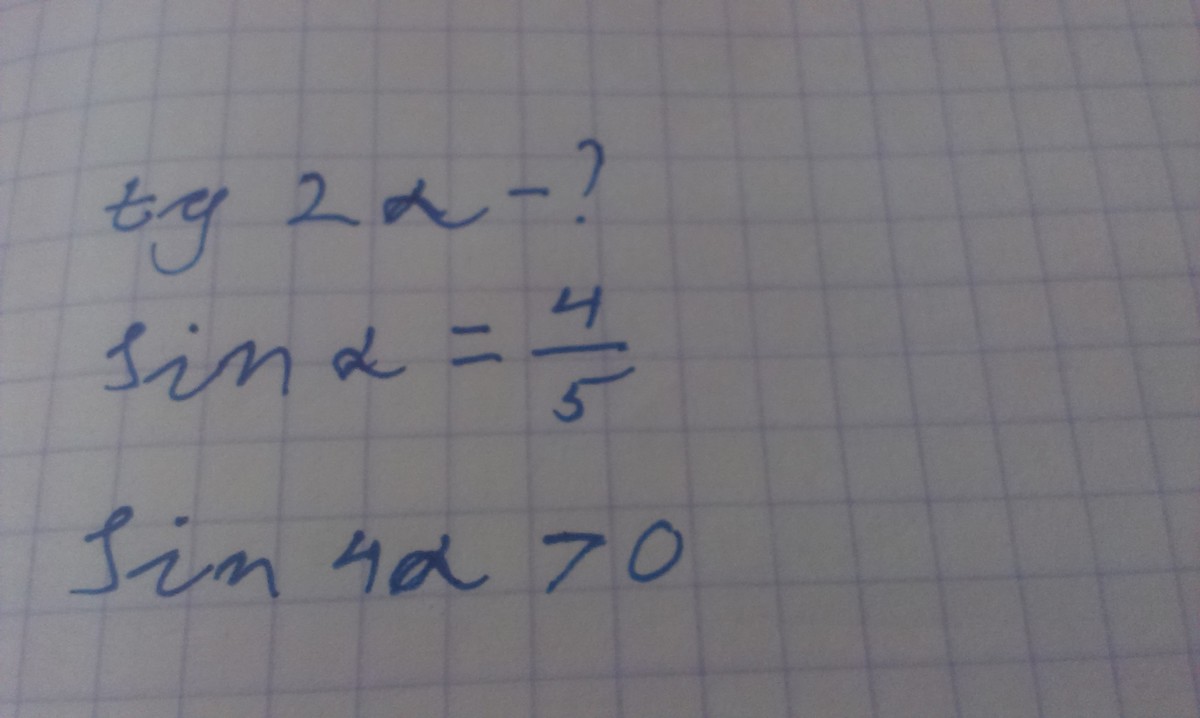 tg 2α - ?
sin α = 4/5
sin 4α > 0